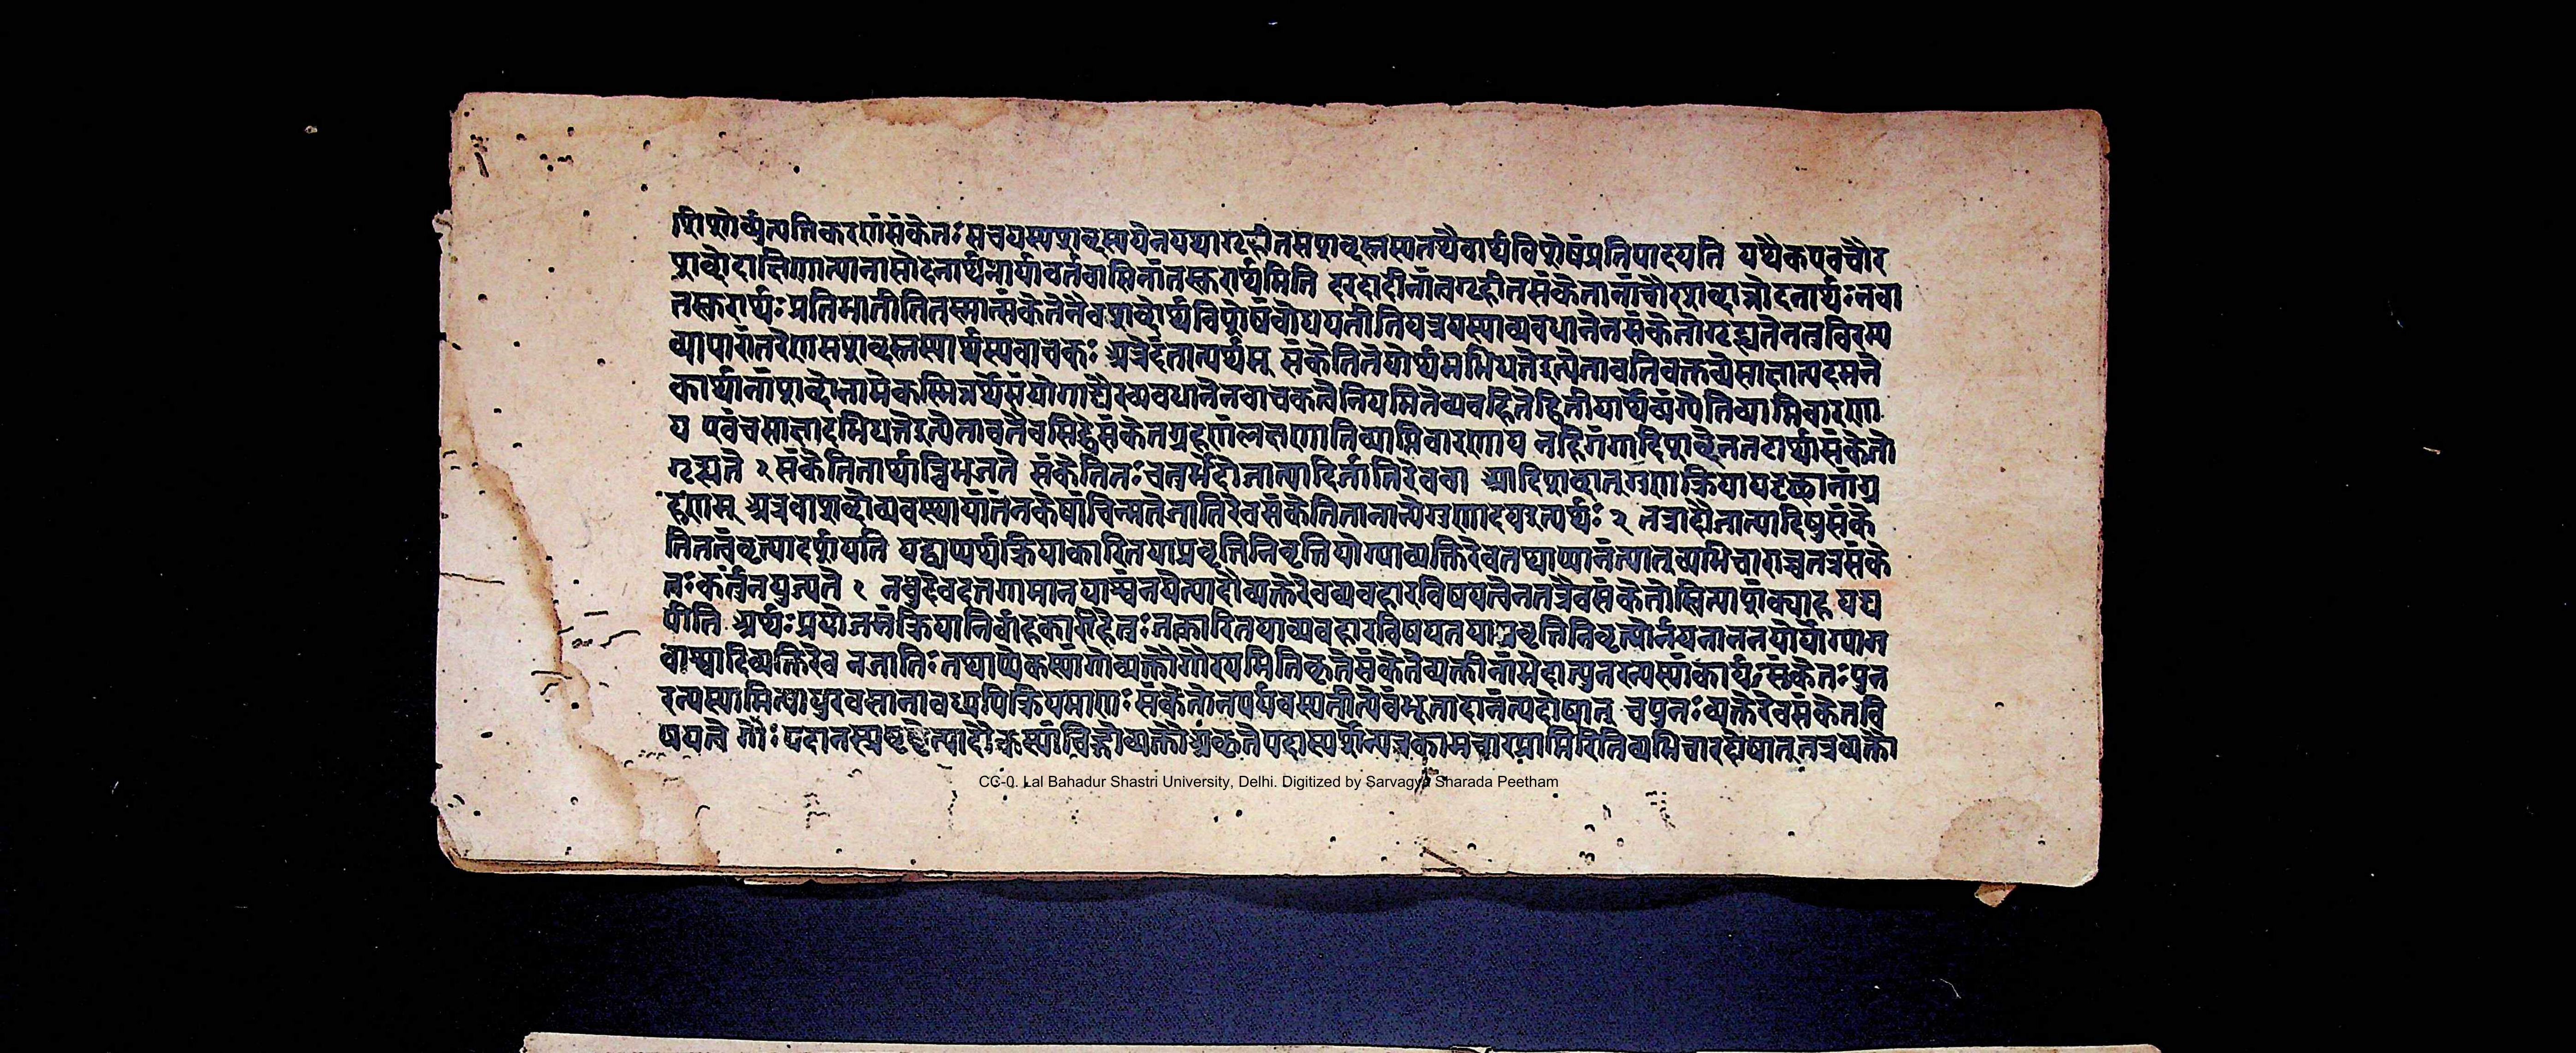 शिशोर्व्युत्पत्तिकरणंसंकेतः सचयस्यशब्दस्ययेनयथागृहीतसशब्दस्तस्यतथैवार्थविशेषंप्रतिपादयति यथैकएवचौर
शब्दोदाक्षिणात्यानामोदनार्थआर्यावर्तवासिनांतस्करार्थमिति हरदादीनांत्वगृहीतसंकेतानांचौरशब्दान्नोदनार्थः नवा
तस्करार्थः प्रतिभातीतितस्मात्संकेतेनैवशब्दोर्थविशेषंबोधयतीतियत्रयस्याव्यवधानेनसंकेतोगृह्यतेनतुविरम्य
व्यापारांतरेणसशब्दस्तस्यार्थस्यवाचकः अत्रेदंतात्पर्यम् संकेतितंयोर्थमभिधत्तेइत्येतावतिवक्तव्येसाक्षात्पदमनै
कार्थानांशब्दानामेकस्मिन्नर्थेसंयोगाद्यैरव्यवधानेनवाचकत्वेनियमितेव्यवहितेद्वितीयार्थेव्यंग्येतिव्याप्तिवारणा
य एवंचसाक्षादभिधत्तेइत्येतावतैवसिद्धेसंकेतग्रहणंलक्षणातिव्याप्तिवारणाय नहिगंगादिशब्देनतटार्थासंकेतो
गृह्यते १ संकेतितार्थान्विभजते संकेतितः चतुर्भेदोजात्यादिर्जातिरेववा आदिशब्दात्गुणक्रियायदृछानांग्र
हणम् अत्रवाशब्दोव्यवस्थायांतेनकेषांचिन्मतेजातिरेवसंकेतितानान्येगुणादयइत्यर्थः २ तत्रादौजात्यादिषुसंके
तितत्वंव्युत्पादर्शयति यद्यप्यर्थक्रियाकारितयाप्रवृत्तिनिवृत्तियोग्याव्यक्तिरेवतथाप्यानंत्यात्व्यभिचाराच्चतत्रसंके
तः कर्तुंनयुज्यते १ ननुदेवदत्तगामानयाश्वंनयेत्यादौव्यक्तेरेवव्यवहारविषयत्वेनतत्रैवसंकेतोस्त्वित्याशंक्याह यद्य
पीति अर्थः प्रयोजनंक्रियानिर्वाहकारीहेतुः तत्कारितयाव्यवहारविषयतयाप्रवृत्तिनिवृत्त्योर्नयनाननयोर्योग्याग
वाश्वादिव्यक्तिरेव नजातिः तथाप्येकस्यांगोव्यक्तौगौरयमितिकृतेसंकेतेव्यक्तीनांभेदात्पुनरन्यस्यांकार्यः संकेतः पुन
रन्यस्यामित्यायुरवसानावध्यपिक्रियमाणः संकेतोनपर्यवस्यतीत्येवंभूतादानंत्यदोषात् चपुनः व्यक्तेरेवसंकेतवि
षयत्वे गौः कस्यांचिद्गोव्यक्तौ कामचारप्राप्तिरितिव्यभिचारदोषात्तत्रव्यक्तौ
CC-0. Lal Bahadur Shastri University, Delhi. Digitized by Sarvagya Sharada Peetham